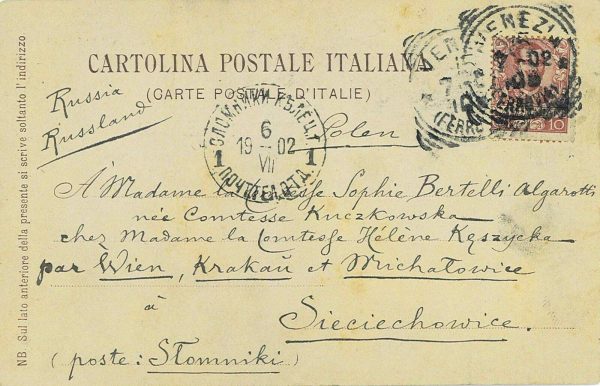 CARTOLINA POSTALE ITALIANA
(CARTE POSTALE D'ITALIE)
NB Sul lato anteriore della presente si scrive soltanto l'indirizzo
VENEZIA
(FERROVIA)
10
Russia
Russland
Polen
СЛОМНИКИ КѢЛЕЦ. Г.
6
19 02
VII
1 1
ПОЧТ. ТЕЛ. ОТД.
À Madame la Comtesse Sophie Bertelli Algarotti
née Comtesse Kuczkowska
chez Madame la Comtesse Hélène Kęszycka
par Wien, Krakau et Michałowice
à
Sieciechowice.
(poste: Słomniki)